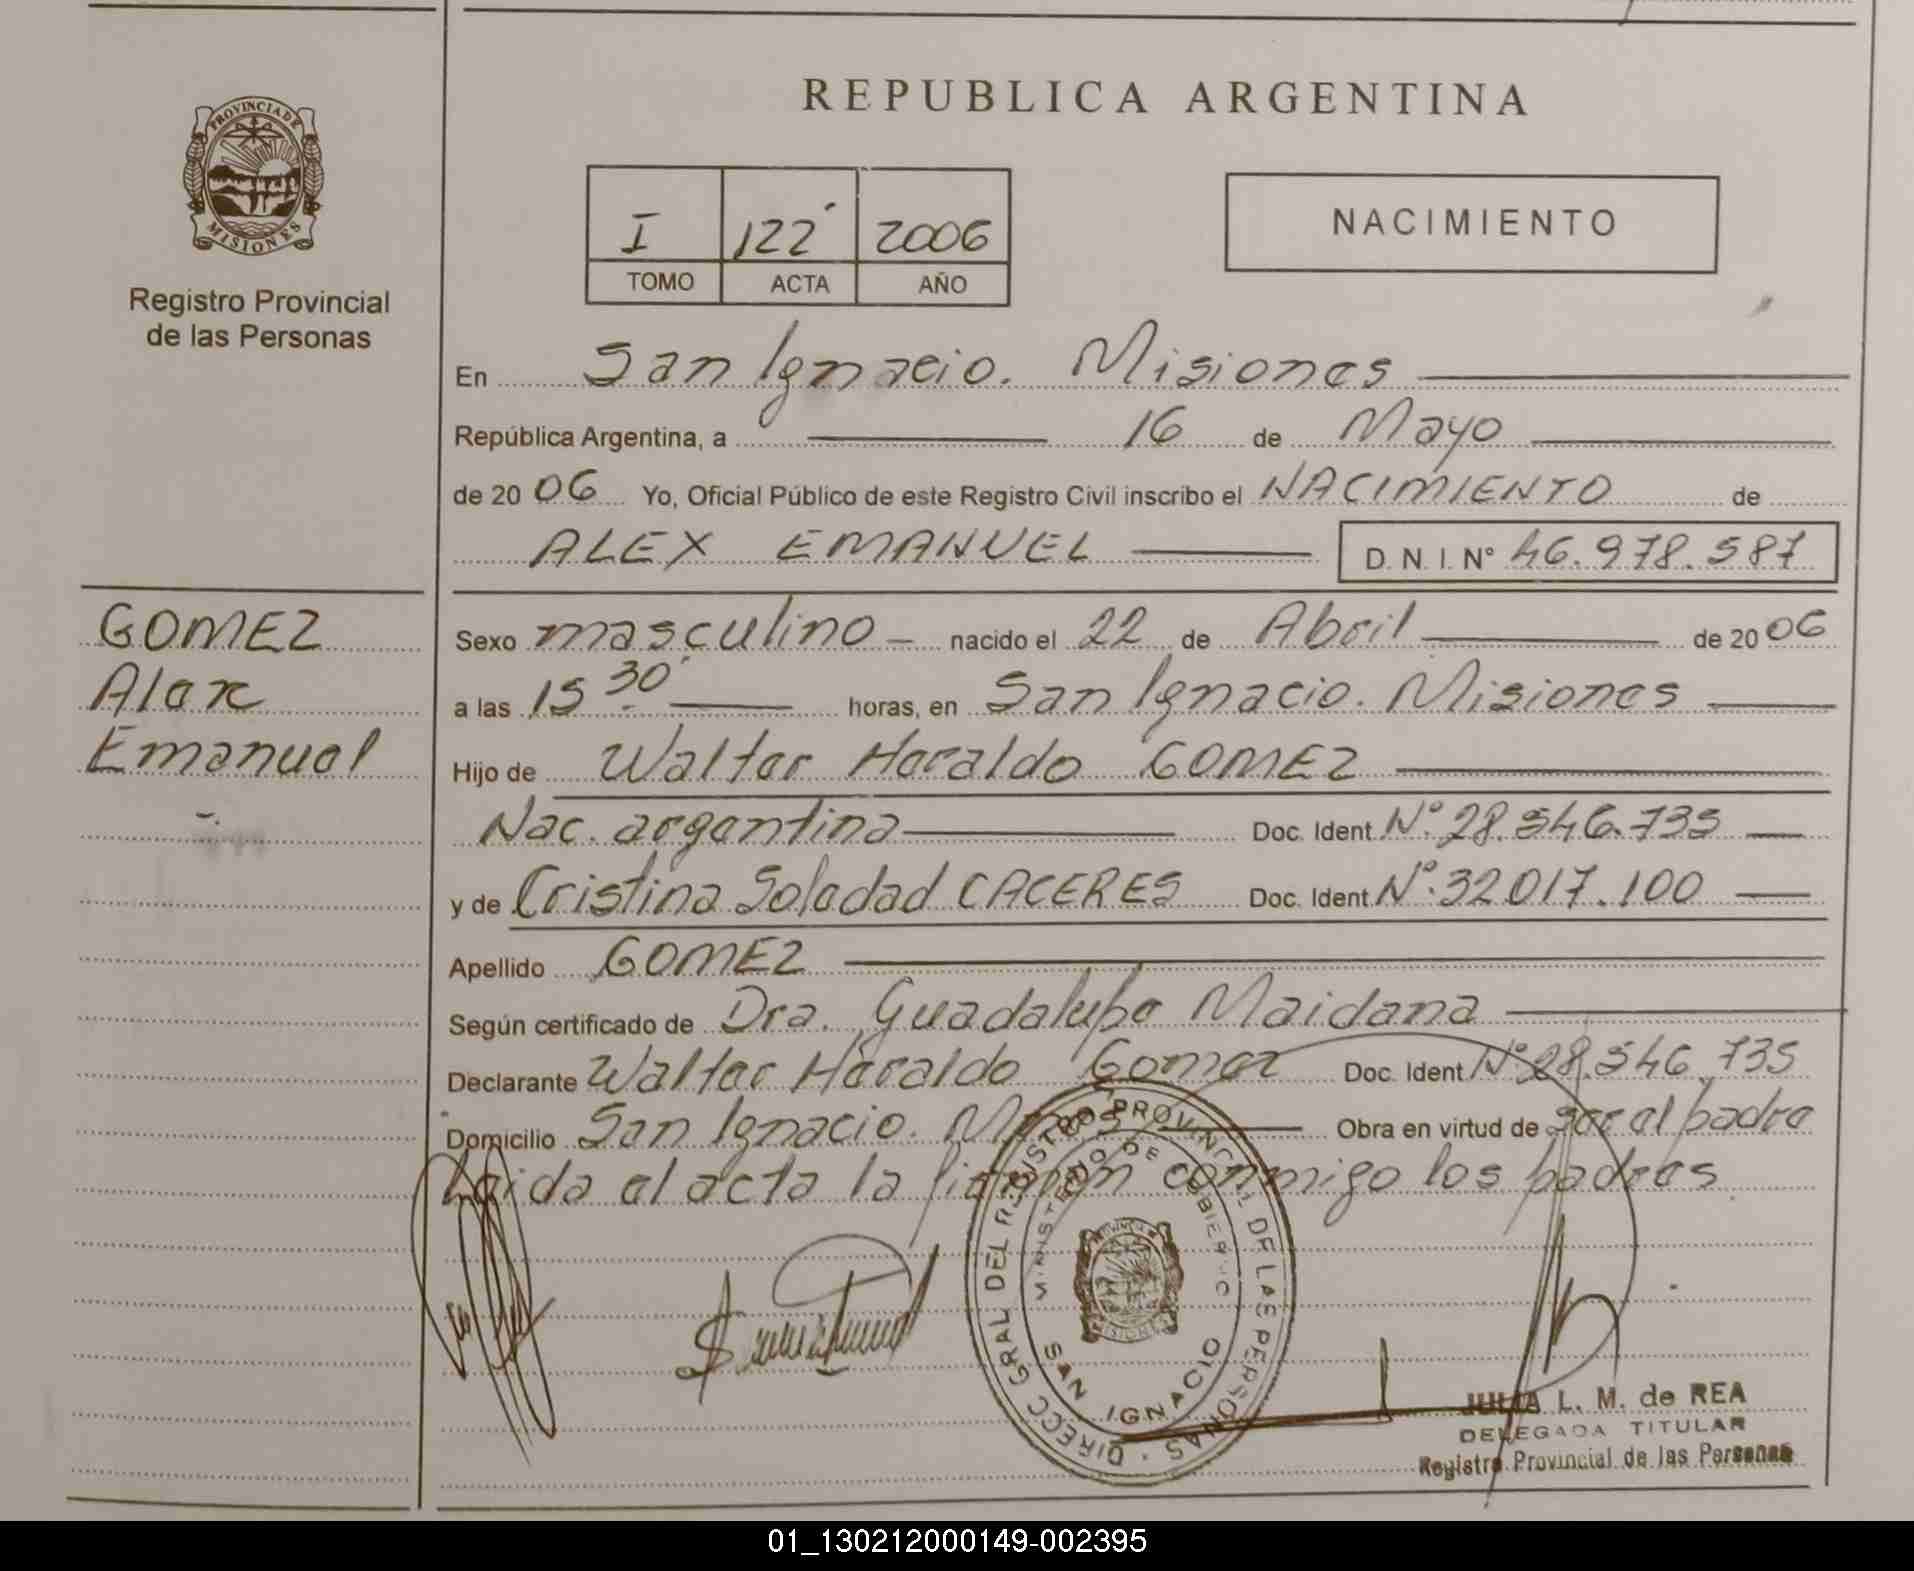 REPUBLICA ARGENTINA
PROVINCIA DE MISIONES
Registro Provincial
de las Personas
I 122 2006
TOMO ACTA AÑO
NACIMIENTO
En San Ignacio. Misiones
República Argentina, a 16 de Mayo
de 2006 Yo, Oficial Público de este Registro Civil inscribo el NACIMIENTO de
ALEX EMANUEL D.N.I. Nº 46.978.587
GOMEZ
Alex
Emanuel
Sexo masculino nacido el 22 de Abril de 2006
a las 15 30 horas, en San Ignacio. Misiones
Hijo de Walter Heraldo GOMEZ
Nac. argentina Doc. Ident Nº 28.546.735
y de Cristina Soledad CACERES Doc. Ident Nº 32.017.100
Apellido GOMEZ
Según certificado de Dra. Guadalupe Maidana
Declarante Walter Heraldo Gomez Doc. Ident Nº 28.546.735
Domicilio San Ignacio. Mnes Obra en virtud de ser el padre
Leida el acta la firman conmigo los padres
DIRECC GRAL DEL REGISTRO PROVINCIAL DE LAS PERSONAS
MINISTERIO DE GOBIERNO
SAN IGNACIO
MISIONES
JULIA L. M. de REA
DELEGADA TITULAR
Registro Provincial de las Personas
01_130212000149-002395